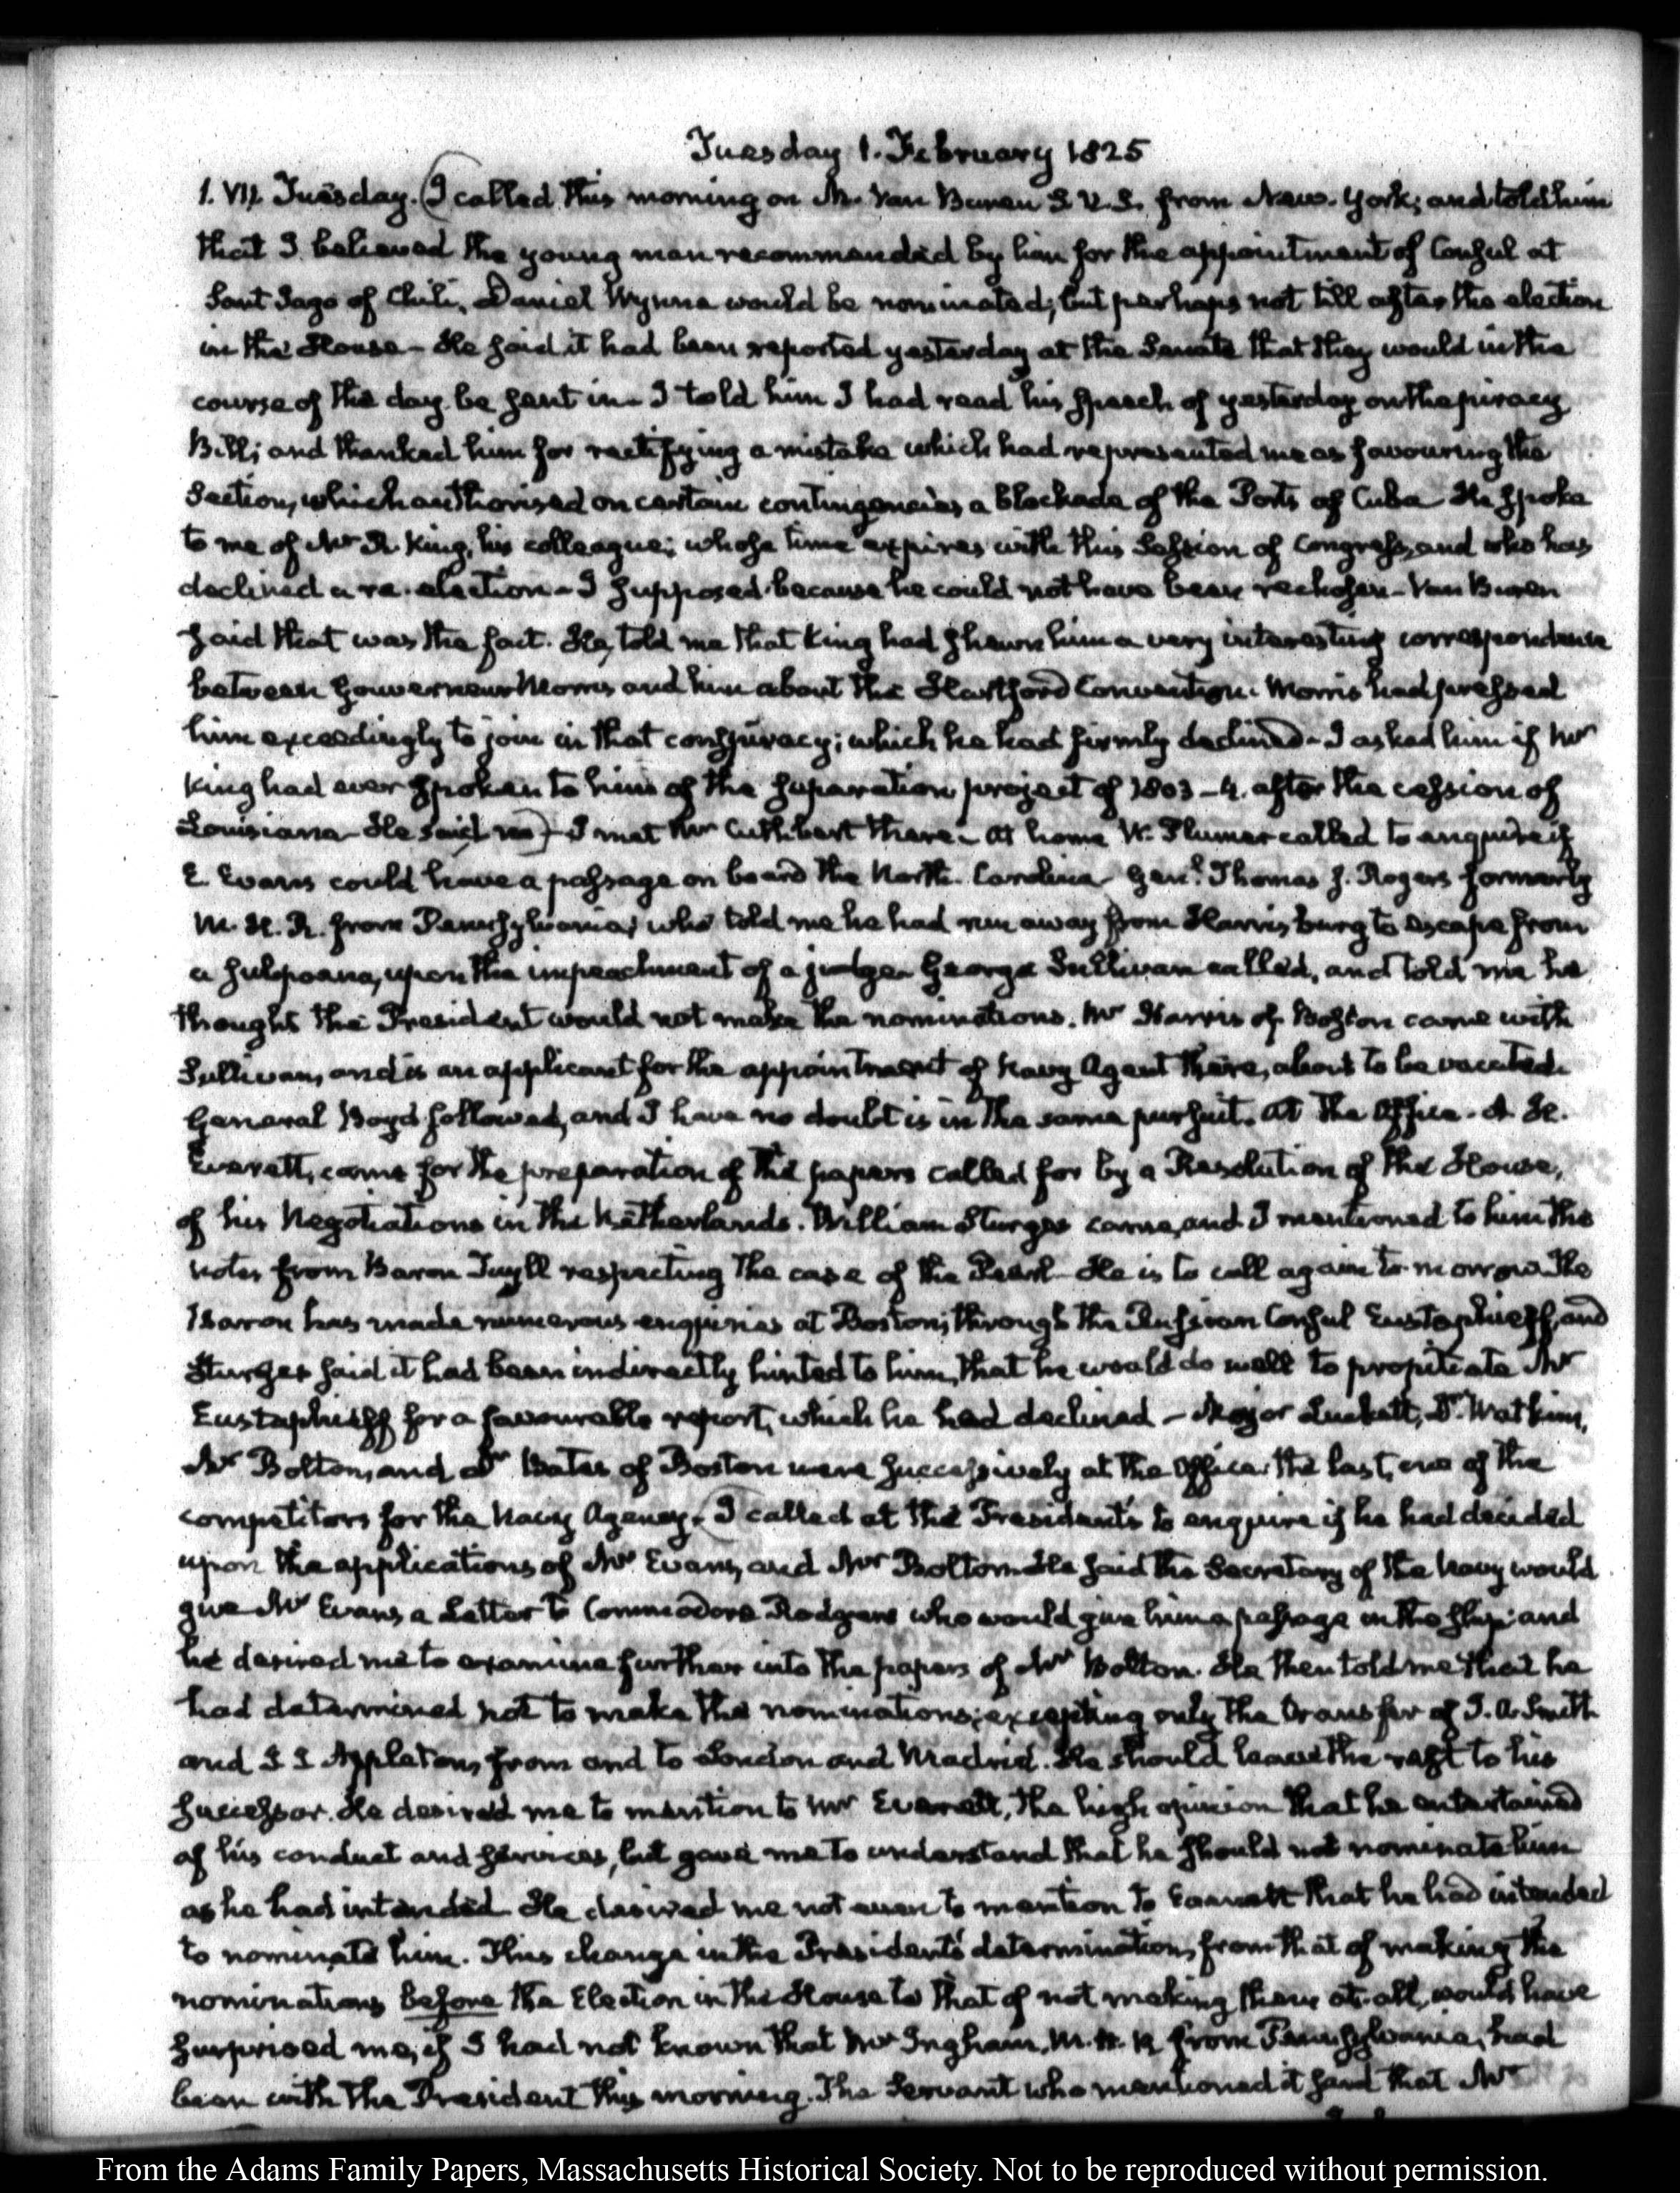 Tuesday 1. February 1825
1. VII. Tuesday. (I called this morning on Mr. Van Buren S. U. S. from New-York; and told him
that I believed the young man recommended by him for the appointment of Consul at
Sant Iago of Chili, Daniel Wynne would be nominated; but perhaps not till after the election
in the House — He said it had been reported yesterday at the Senate that they would in the
course of the day be sent in — I told him I had read his Speech of yesterday on the piracy
Bill; and thanked him for rectifying a mistake which had represented me as favouring the
Section, which authorised on certain contingencies a blockade of the Ports of Cuba — He spoke
to me of Mr. R. King, his colleague; whose time expires with this Session of Congress, and who has
declined a re-election — I supposed because he could not have been rechosen — Van Buren
said that was the fact. He told me that King had shewn him a very interesting correspondence
between Gouverneur Morris and him about the Hartford Convention. Morris had pressed
him exceedingly to join in that conspiracy; which he had firmly declined — I asked him if Mr
King had ever spoken to him of the separation project of 1803-4. after the cession of
Louisiana — He said no) — I met Mr Cuthbert there — At home W. Plumer called to enquire if
E. Evans could have a passage on board the North-Carolina — Genl. Thomas J. Rogers formerly
M. H. R. from Pennsylvania, who told me he had run away from Harrisburg to escape from
a sulpoena, upon the impeachment of a judge — George Sullivan called, and told me he
thought the President would not make the nominations. Mr Harris of Boston came with
Sullivan, and is an applicant for the appointment of Navy Agent there, about to be vacated.
General Boyd followed, and I have no doubt is in the same pursuit. At the Office. A. H.
Everett, came for the preparation of the papers called for by a Resolution of the House,
of his Negotiations in the Netherlands. William Sturges came, and I mentioned to him the
notes from Baron Tuyll respecting the case of the Pearl — He is to call again to-morrow. The
Baron has made numerous enquiries at Boston, through the Russian Consul Eustaphieff, and
Sturges said it had been indirectly hinted to him, that he would do well to propitiate Mr
Eustaphieff for a favourable report, which he had declined — Major Luckett, Dr. Watkins,
Mr Bolton, and Mr Bates of Boston were successively at the Office: the last, one of the
competitors for the Navy Agency. (I called at the President's to enquire if he had decided
upon the applications of Mr Evans, and Mr Bolton. He said the Secretary of the Navy would
give Mr Evans a Letter to Commodore Rodgers who would give him a passage in the ship: and
he desired me to examine further into the papers of Mr Bolton. He then told me that he
had determined not to make the nominations; excepting only the transfer of T. A. Smith
and J J Appleton, from and to London and Madrid. He should leave the rest to his
Successor. He desired me to mention to Mr Everett, the high opinion that he entertained
of his conduct and services, but gave me to understand that he should not nominate him
as he had intended. He desired me not even to mention to Everett that he had intended
to nominate him. This change in the President's determination, from that of making the
nominations before the Election in the House to that of not making them at all, would have
surprised me, if I had not known that Mr Ingham, M. H. R from Pennsylvania, had
been with the President this morning. The Servant who mentioned it said that Mr
From the Adams Family Papers, Massachusetts Historical Society. Not to be reproduced without permission.